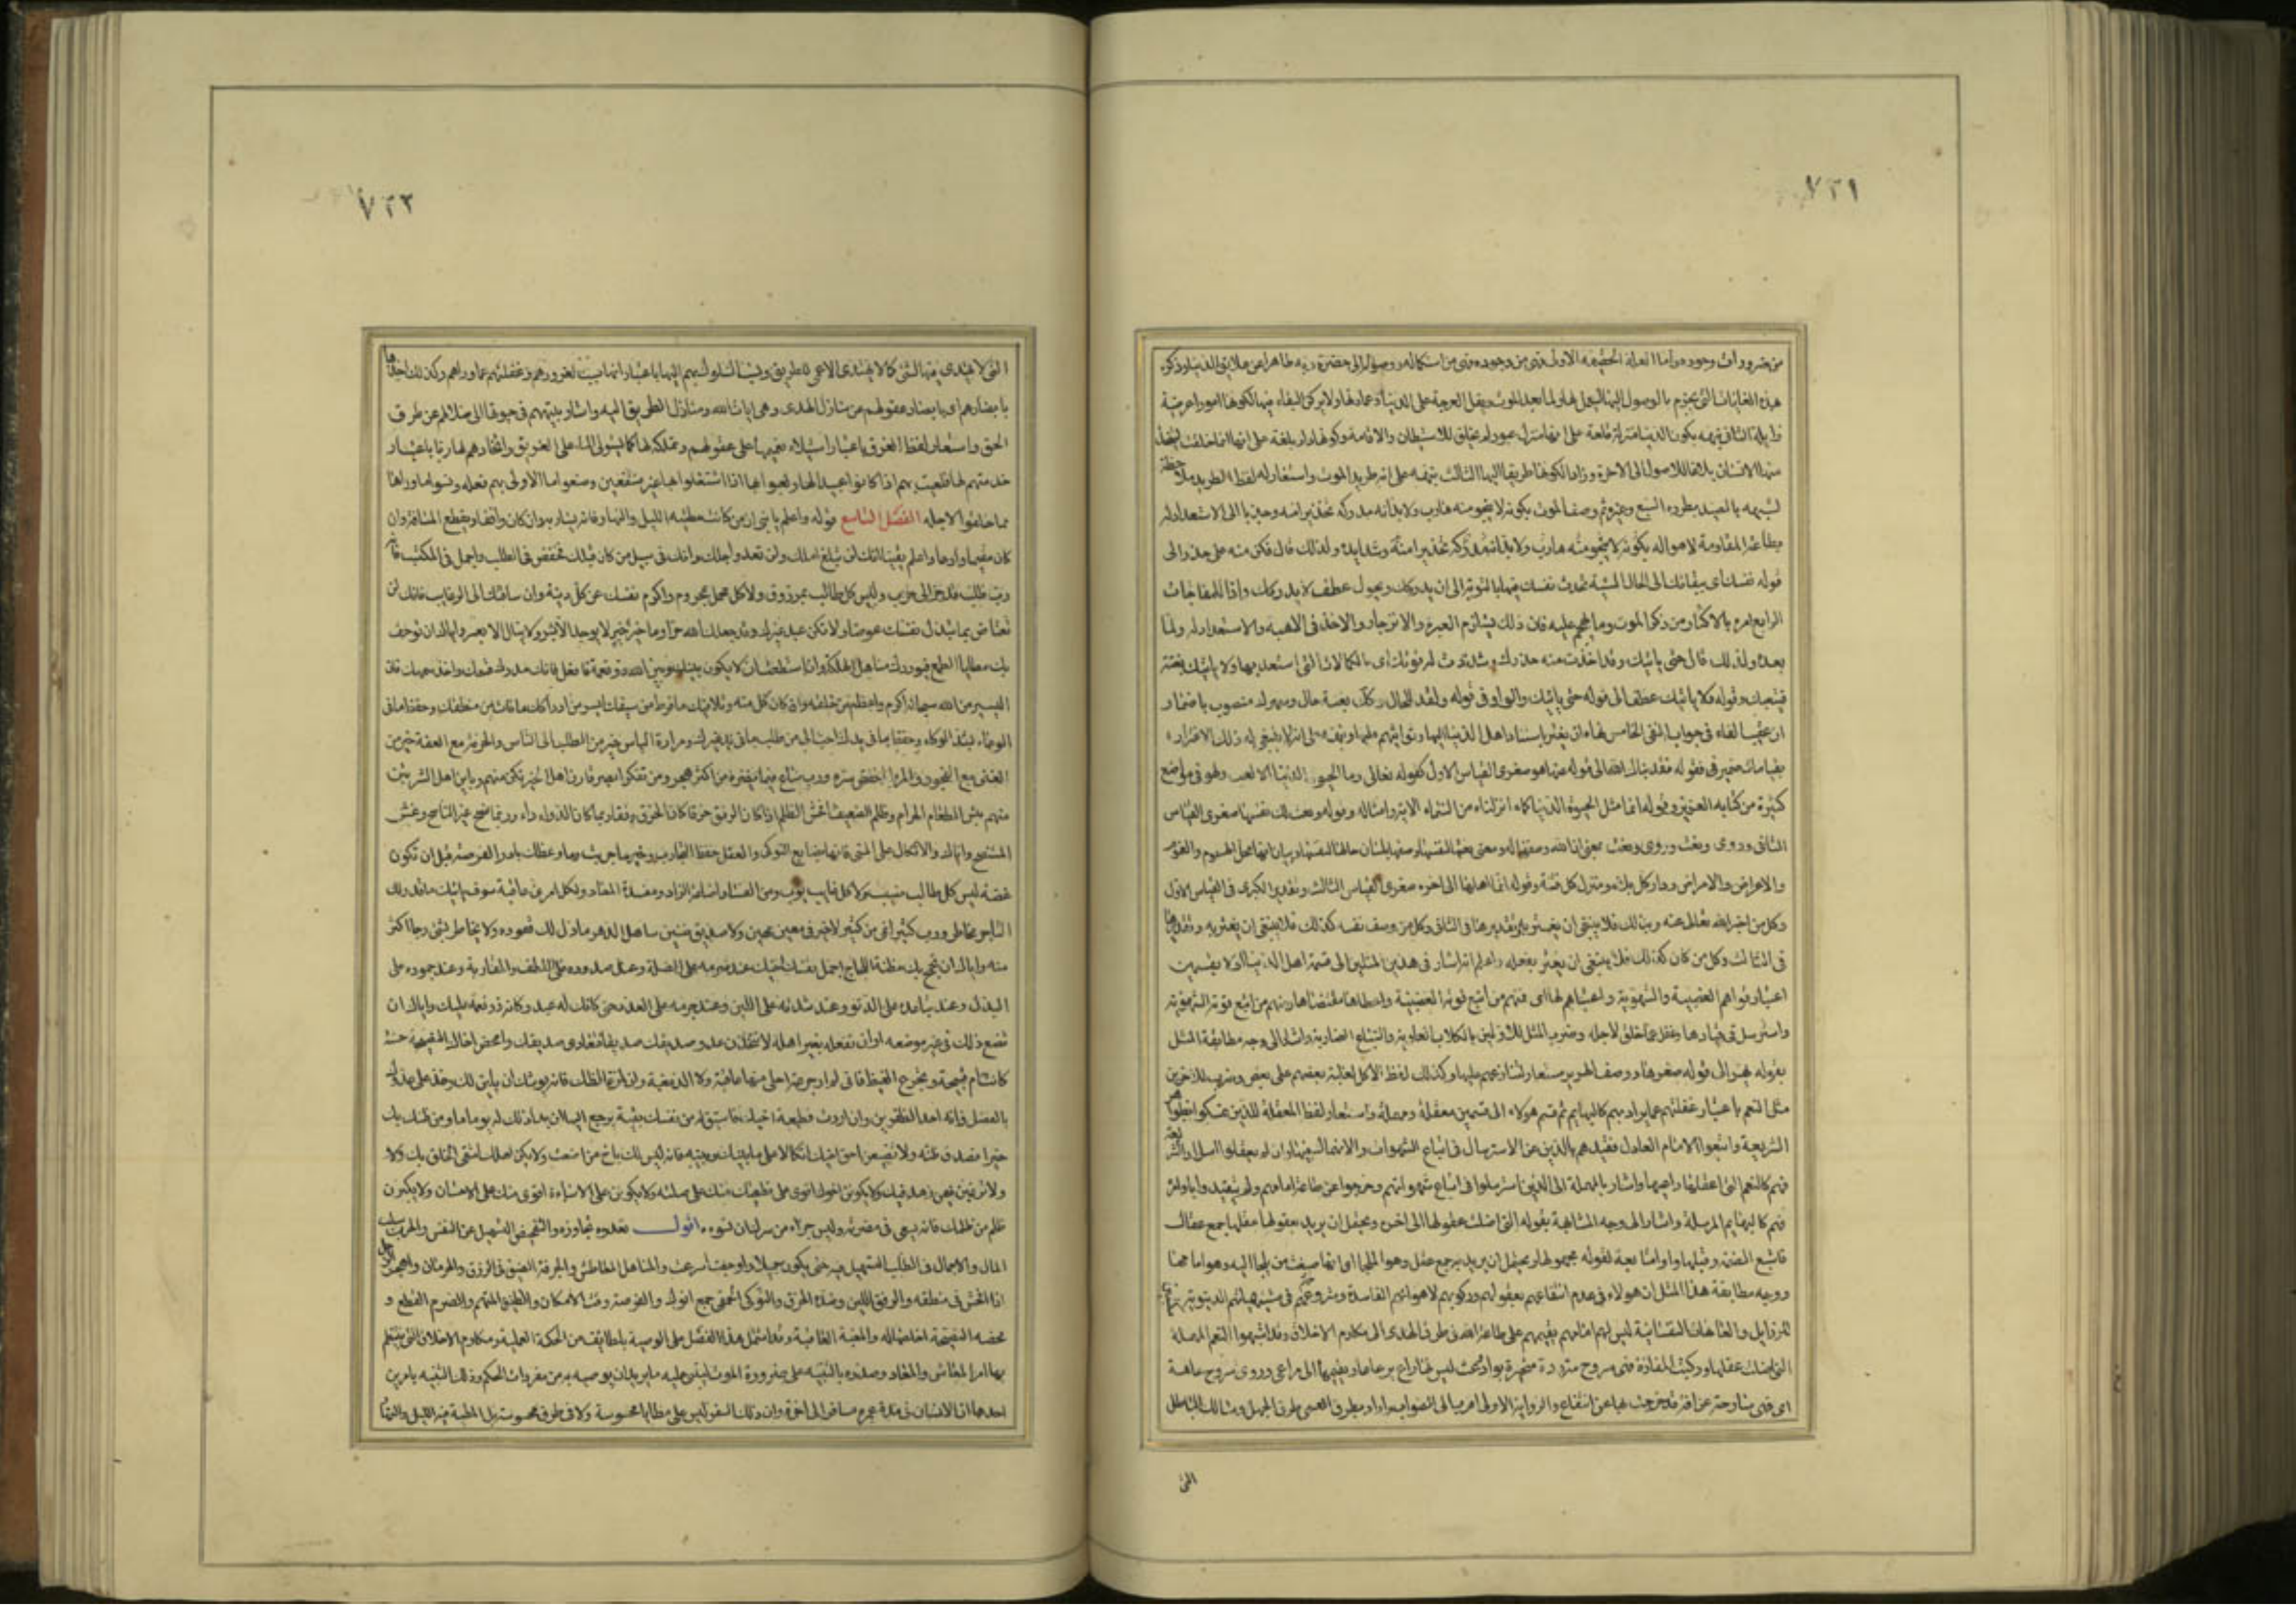 ٧٢١
من ضرورات وجوده واما العلة الحقيقية الاولى فهى من وجوده فهى من استكماله ووصوله الى حضرة ربه طاهرا عن علايق الدنيا وذكره
هذه الغايات التى يجزم بالوصول اليها ليعمل لها ولما بعد الموت ويقل العرجة على الدنيا وعمارتها ولا يركن البقاء فيها لكونها امورا عرضية
زايلة الثانى تنبيهه بكون الدنيا منزلة قلعة على انها منزل عبور لم يخلق للاستيطان والاقامة وكونها دار بلغة على انها انما خلقت ليتخذ
منها الانسان بلاغا للاصول الى الاخرة وزادا لكونها طريقا اليها الثالث تنبيهه على انه طريد الموت واستعار له لفظ الطريد ملاحظة
لشبهه بالصيد يطرده السبع وغيره ثم وصف الموت بكونه لا ينجو منه هارب ولا بد انه مدركه تحذيرا منه وجذبا الى الاستعداد له
بطاعة الله المقاومة لاهواله بكونه لا ينجو منه هارب ولا بد انه مدركه تحذيرا منه ولذلك قال فكن منه على حذر الى
قوله نفسك اى بقائك الى الحال السيئة تحدث نفسك فيها بالتوبة الى ان يدركك ويحول عطف لا يدركك واذا للمفاجات
الرابع امره بالاكثار من ذكر الموت وما يهجم عليه فان ذلك يستلزم العبرة والانزجار والاخذ فى الاهبة والاستعداد له ولما
بعده ولذلك قال حتى ياتيك وقد اخذت منه حذرك وشددت له قوتك اى بالكمالات التى استعد بها ولا ياتيك بغتة
فيبهرك وقوله فلا ياتيك عطف الى قوله حتى ياتيك والواو فى قوله وقد للحال وكان بغتة حال ويبهرك منصوب باضمار
ان عقيب الفاء فى جواب النفى الخامس نهاه ان يغتر باسناد اهل الدنيا اليها وتواثبهم عليها ونبه على انه لا ينبغى له ذلك الاغترار
بقياسات ضمير فى فقوله فقد نباك الله الى قوله عنها هو صغرى القياس الاول كقوله تعالى وما الحيوة الدنيا الا لعب ولهو فى مواضع
كثيرة من كتابه العزيز وقوله انما مثل الحيوة الدنيا كماء انزلناه من السماء الاية وامثاله وقوله ونعت لك نفسها صغرى القياس
والاعراض والامراض ودار كل بلية ومنزل كل فتنة وقوله انما اهلها الى اخره صغرى القياس الثالث وتقدير الكبرى فى القياس الاول
وكل من اخبر الله تعالى عنه وبذلك فلا ينبغى ان يغتر به وتقديرها فى الثانى وكل من وصف نفسه كذلك فلا ينبغى ان يغتر به وتقديرها
فى الثالث وكل من كان كذلك فلا ينبغى ان يغتر بفعله واعلم انه اشار فى هذين المثلين الى قسمة اهل الدنيا اولا بقسمين
اعتبار قواهم الغضبية والشهوية واعتباهم لها اى فمنهم من اتبع قوته الغضبية واعطاها مقتضاها ومنهم من اتبع قوته الشهوية
واسترسل فى قيادها وغفل عما خلق لاجله وضرب المثل للاولين بالكلاب العاوية والسباع الضارية واشار الى وجه مطابقة المثل
بقوله يهر الى قوله صغيرها ووصف الهرير مستعار لتنازعهم عليها وكذلك لفظ الاكل لغلبة بعضهم على بعض وضرب للاخرين
مثل النعم باعتبار غفلتهم عما يراد بهم كالبهايم ثم قسم هؤلاء الى قسمين معقلة ومهملة واستعار لفظ المعقلة للذين تمسكوا بظواهر
الشريعة واتبعوا الامام العادل فقيدهم بالدين عن الاسترسال فى اتباع الشهوات والانهماك فيها وان لم يعقلوا اسرار الشريعة
فهم كالنعم التى اعقلها راعيها واشار بالمهملة الى الذين استرسلوا فى اتباع شهواتهم وخرجوا عن طاعة امامهم ولم يتقيدوا باوامره
فهم كالبهايم المرسلة واشار الى وجه المشابهة بقوله التى اضلت عقولها الى اخره ويحتمل ان يريد بعقولها عقلها جمع عقال
ووجه مطابقة هذا المثل ان هولاء فى عدم انتفاعهم بعقولهم وركوبهم لاهوائهم الفاسدة
للرذايل والعاهات النفسانية ليس لهم امام يقيمهم على طاعة الله فى طرق الهدى الى مكارم الاخلاق وقد اشبهوا النعم المهملة
التى اضلت عقلها وركبت المفازة فهى سروح متردة متحيرة بواد وعث ليس لها راع يرعاها ولا يقيمها الى مراعى وروى سروح عاهة
اى فهى سارحة عن افة قد خرجت بها عن انتفاع والرواية الاولى اقرب الى الصواب واراد بطريق العمى طرق الجهل ومسالك الباطل
التى
٧٢٢
التى لا يهتدى فيها لشئ كما لا يهتدى الاعمى للطريق ونسب السلوك بهم اليها باعتبار انها سبب لغرورهم وغفلتهم عما وراهم وكذلك اخذها
بابصارهم اى بابصار عقولهم عن منازل الهدى وهى ايات الله ومنازل الطريق اليه واشار بتيههم فى حيرتها الى ضلالهم عن طرق
الحق واستعار لفظ الغرق باعتبار استيلاء نعيمها على عقولهم وتملكه لها كما يستولى الماء على الغريق واتخاذهم لها ربا باعتبار
خدمتهم لها فلعبت بهم اذا كانوا عبيدا لها ولعبوا بها اذا اشتغلوا بها غير منتفعين وضيعوا ما الاولى بهم فعله ونسوا ما وراها
مما خلقوا لاجله الفصل التاسع قوله واعلم يا بنى ان من كانت مطيته الليل والنهار فانه يسار به وان كان واقفا ويقطع المسافة وان
كان مقيما وادعا واعلم يقينا انك لن تبلغ املك ولن تعدو اجلك وانك فى سبيل من كان قبلك فخفض فى الطلب واجمل فى المكتسب فانه
رب طلب قد جر الى حرب وليس كل طالب بمرزوق ولا كل مجمل بمحروم واكرم نفسك عن كل دنية وان ساقتك الى الرغايب فانك لن
تعتاض بما تبذل من نفسك عوضا ولا تكن عبد غيرك وقد جعلك الله حرا وما خير خير لا يوجد الا بشر ولا ينال الا بعسر واياك ان توجف
بك مطايا الطمع فتوردك مناهل الهلكة وان استطعت ان لا يكون بينك وبين الله ذو نعمة فافعل فانك مدرك قسمك واخذ سهمك فان
اليسير من الله سبحانه اكرم واعظم من خلقه وان كان كل منه وتلافيك ما فرط من صمتك ايسر من ادراك ما فات من منطقك وحفظ ما فى
الوعاء بشد الوكاء وحفظ ما فى يدك احب الى من طلب ما فى يد غيرك ومرارة الياس خير من الطلب الى الناس والحرفة مع العفة خير من
الغنى مع الفجور والمرء احفظ لسره ورب ساع فيما يضره من اكثر هجر ومن تفكر ابصر قارن اهل الخير تكن منهم وباين اهل الشر تبن
منهم بئس الطعام الحرام وظلم الضعيف افحش الظلم اذا كان الرفق خرقا كان الخرق رفقا ربما كان الدواء داء وربما نصح غير الناصح وغش
المستنصح واياك والاتكال على المنى فانها بضايع النوكى والعقل حفظ التجارب وخير ما جربت ما وعظك بادر الفرصة قبل ان تكون
غصة ليس كل طالب يصيب ولا كل غايب يؤوب ومن الفساد اضاعة الزاد ومفسدة المعاد ولكل امر عاقبة سوف ياتيك ما قدر لك
التاجر مخاطر ورب يسير انمى من كثير لا خير فى معين مهين ولا صديق ظنين ساهل الدهر ما ذل لك قعوده ولا تخاطر بشئ رجاء اكثر
منه واياك ان تجمح بك مطية اللجاج احمل نفسك من اخيك عند صرمه على الصلة وعند صدوده على اللطف والمقاربة وعند جموده على
البذل وعند تباعده على الدنو وعند شدته على اللين وعند جرمه على العذر حتى كانك له عبد وكانه ذو نعمة عليك واياك ان
تضع ذلك فى غير موضعه او ان تفعله بغير اهله لا تتخذن عدو صديقك صديقا فتعادى صديقك وامحض اخاك النصيحة حسنة
كانت ام قبيحة وتجرع الغيظ فانى لم ار جرعة احلى منها عاقبة ولا الذ مغبة ولن لمن غالظك فانه يوشك ان يلين لك وخذ على عدوك
بالفضل فانه احد الظفرين وان اردت قطيعة اخيك فاستبق له من نفسك بقية يرجع اليها ان بدا له ذلك يوما ما ومن ظن بك
خيرا فصدق ظنه ولا تضيعن حق اخيك اتكالا على ما بينك وبينه فانه ليس لك باخ من اضعت حقه ولا يكن اهلك اشقى الخلق بك ولا
ولا ترغبن فيمن زهد فيك ولا يكونن اخوك اقوى على قطيعتك منك على صلته ولا يكونن على الاساءة اقوى منك على الاحسان ولا يكبرن
ظلم من ظلمك فانه يسعى فى مضرته ونفعك وليس جزاء من سرك ان تسوءه اقول
تعدوه تجاوزه والتخفيض التسهيل عن النفس والحرب سلب
المال والاجمال فى الطلب التسهيل فيه حتى يكون جميلا واوجفت اسرعت والمناهل المعاطش والحرفة الضيق فى الرزق والحرمان واهجر الرجل
اذا افحش فى منطقه والرفق اللين وضده الخرق والنوكى الحمقى جمع انوك والفرصة وقت الامكان والظنين المتهم والصرم القطع و
محضه النصيحة اخلصها له والمغبة العاقبة وقد اشتمل هذا الفصل على الوصية بلطايف من الحكمة العملية ومكارم الاخلاق التى ينتظم
بها امر المعاش والمعاد وصدره بالتنبيه على ضرورة الموت لينبنى عليه ما يريد ان يوصيه به من مفردات الحكم وذلك التنبيه بامرين
احدهما ان الانسان فى مدة عمره مسافر الى الاخرة وان ذلك السفر ليس على مطايا محسوسة ولا فى طرق محسوسة بل المطية فيه الليل والنهار